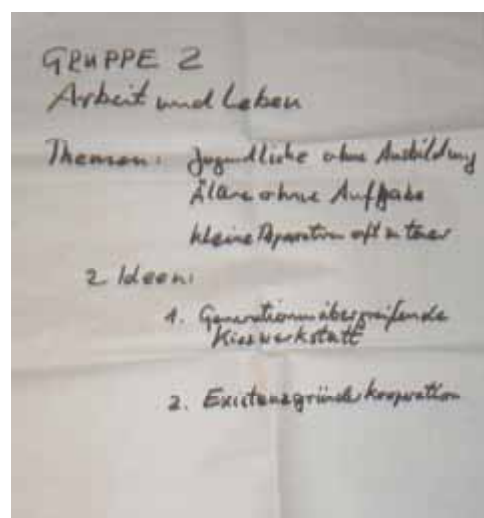 GRUPPE 2
Arbeit und Leben
Themen: Jugendliche ohne Ausbildung
Ältere ohne Aufgabe
kleine Reparaturen oft zu teuer
2 Ideen:
1. Generationenübergreifende
Kiezwerkstatt
2. Existenzgründerkooperation